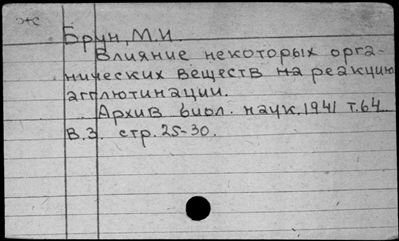 Брун, М.И.
Влияние некоторых орга-
нических веществ на реакцию
агглютинации.
Архив биол. наук. 1941 т.64.
В.3. стр. 25-30.